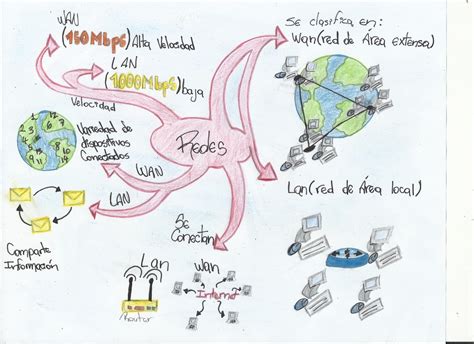 WAN
Alta Velosidad
LAN
(1000Mbps) baja
Velocidad
Variedad de
dispositivos
Conectados
WAN
LAN
Comparte
Información
Redes
Se
Conectan
Lan
Router
Wan
Internet
Se clasifica en:
Wan(red de Área extensa)
Lan(red de Área local)